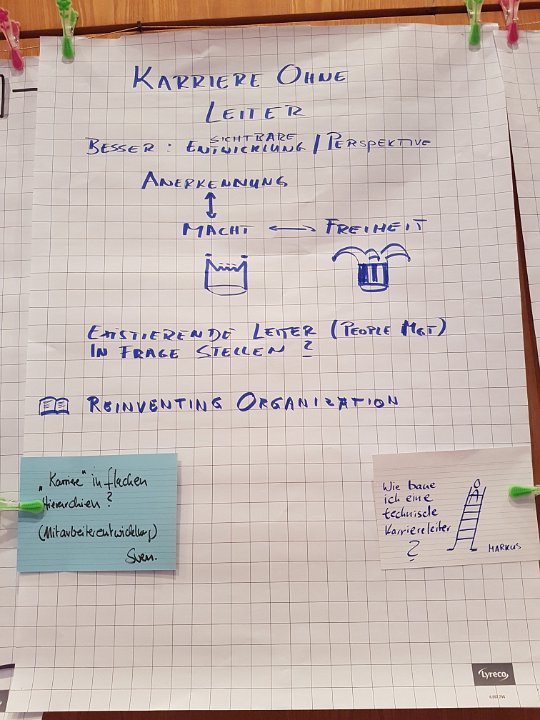 KARRIERE OHNE
LEITER
SICHTBARE
BESSER : ENTWICKLUNG / PERSPEKTIVE
ANERKENNUNG
MACHT FREIHEIT
EXISTIERENDE LEITER (PEOPLE MGT)
IN FRAGE STELLEN ?
REINVENTING ORGANIZATION
„Karriere" in flachen
Hierarchien?
(Mitarbeiterentwicklung)
Sven.
Wie baue
ich eine
technische
Karriereleiter
?
MARKUS
Lyreco